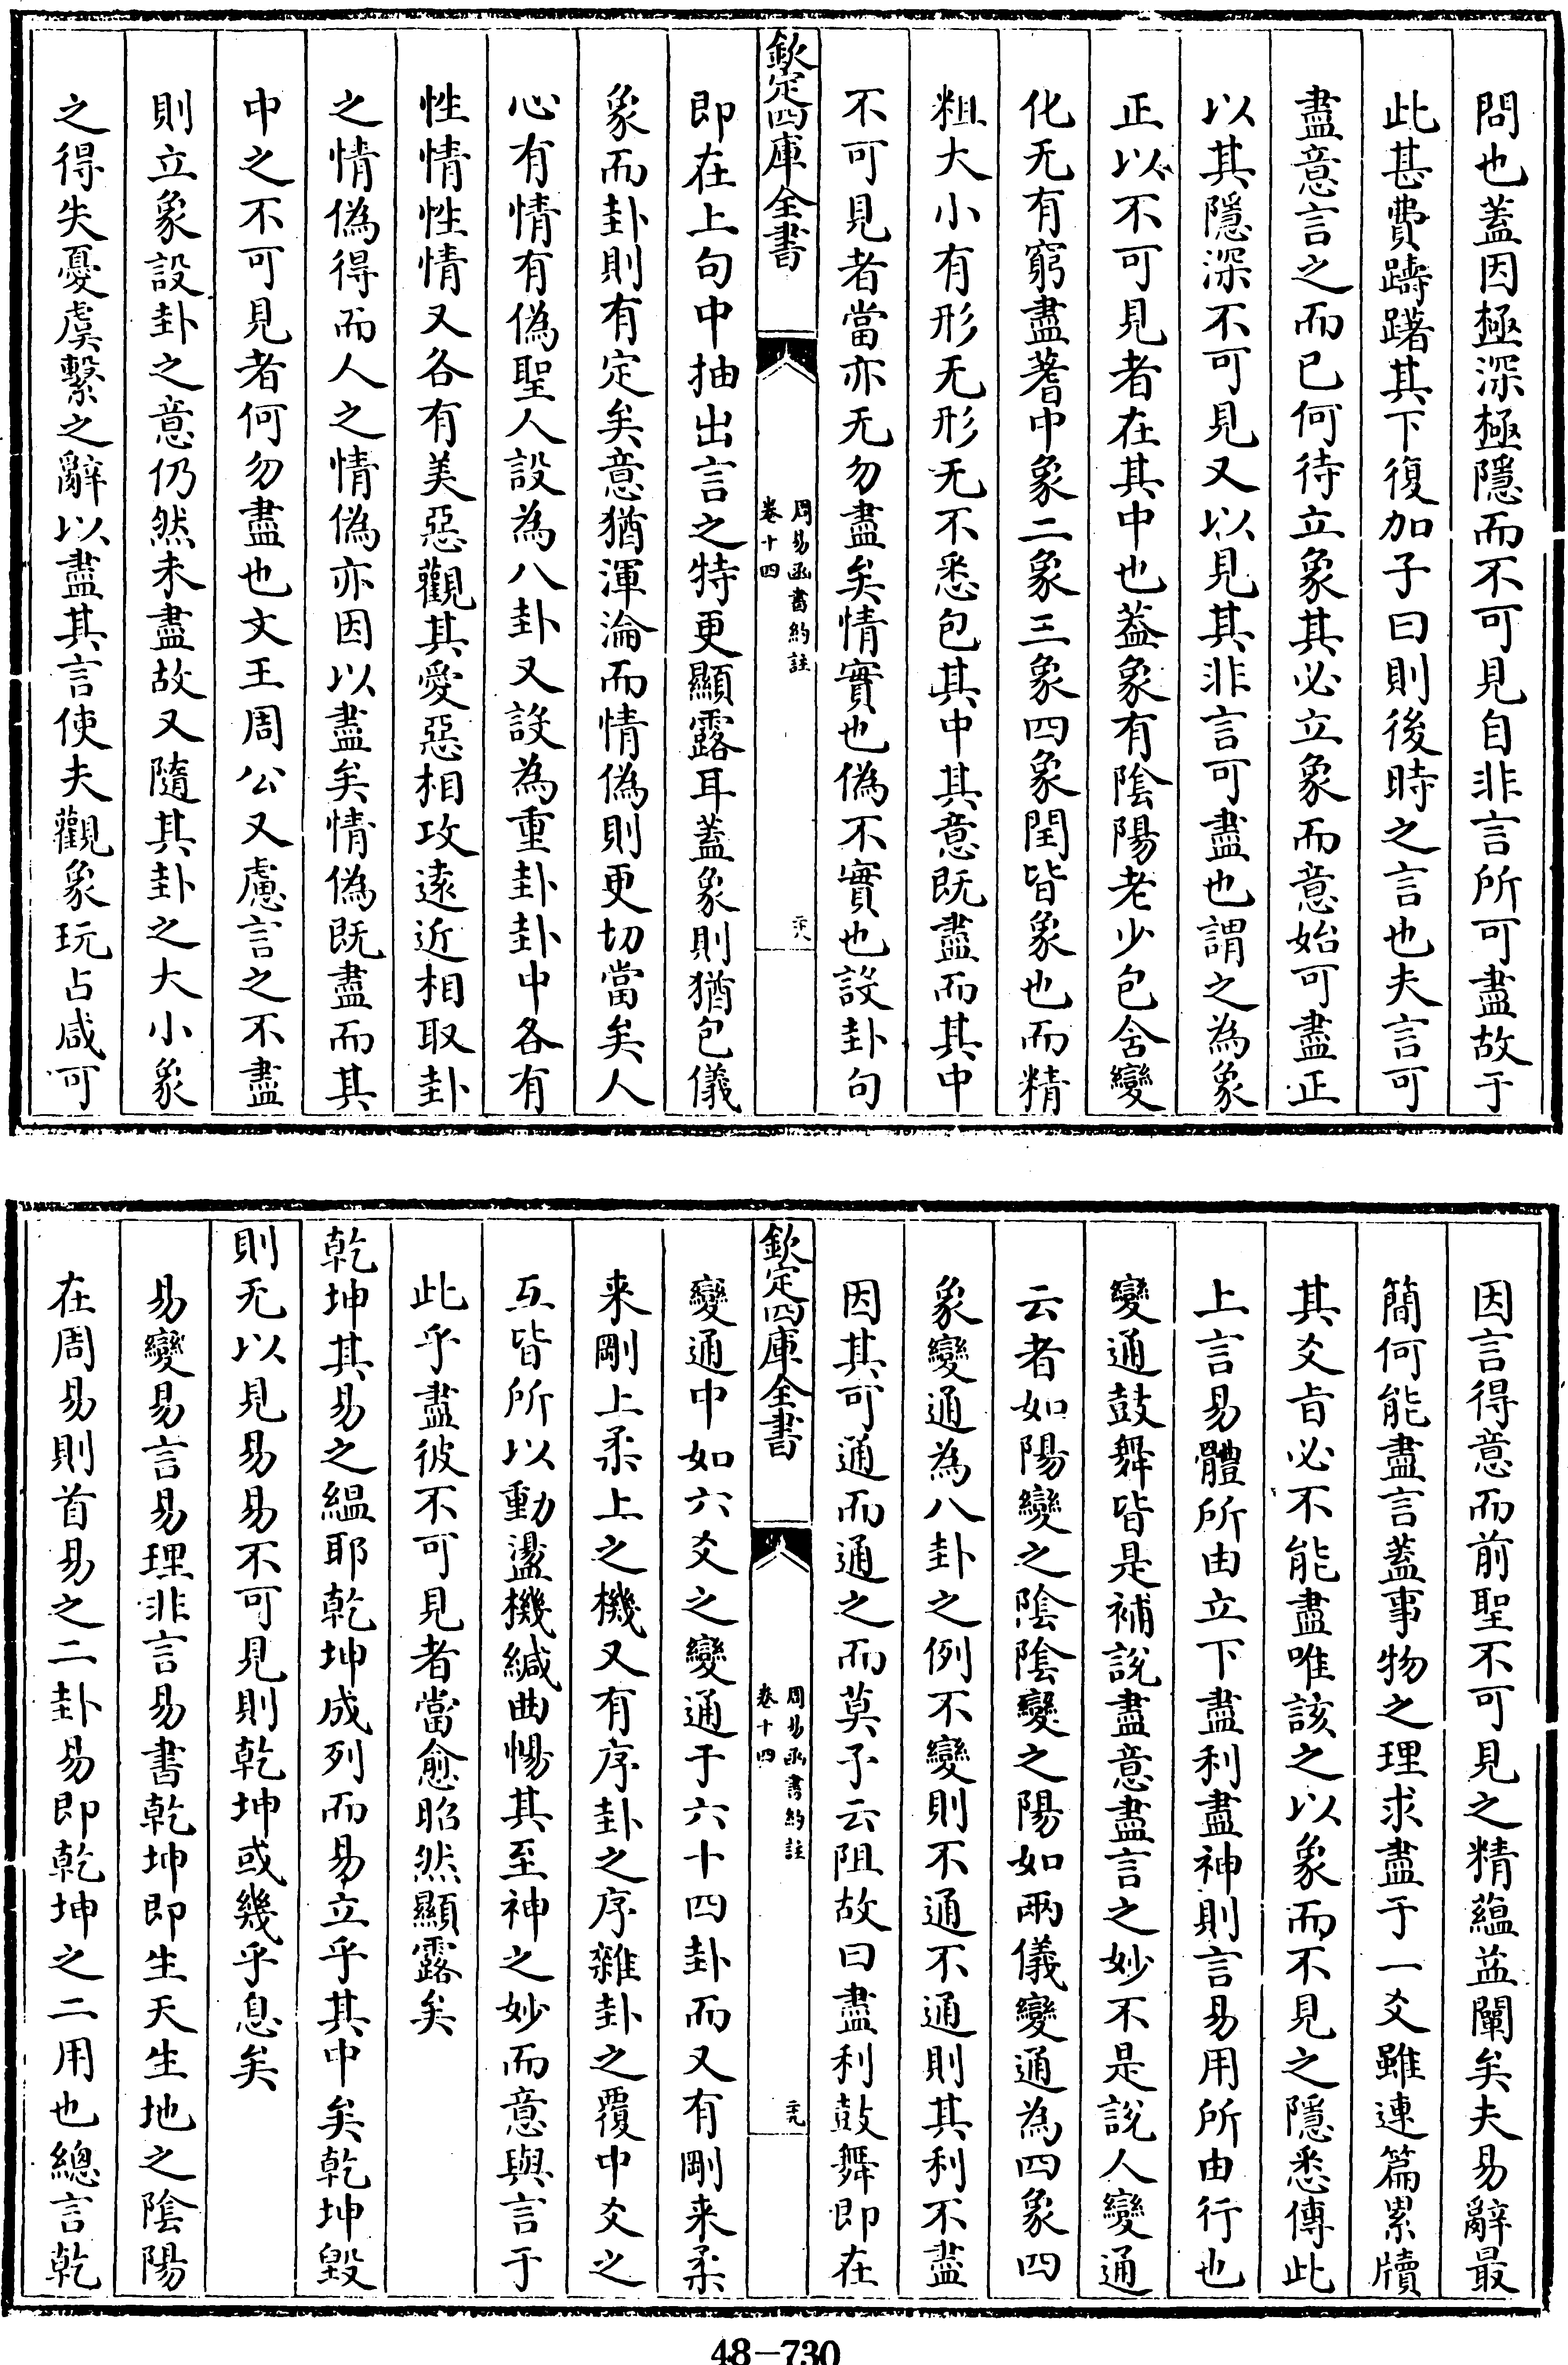 問也蓋因極深極隱而不可見自非言所可盡故于
此甚費躊躇其下復加子曰則後時之言也夫言可
盡意言之而已何待立象其必立象而意始可盡正
以其隱深不可見又以見其非言可盡也謂之為象
正以不可見者在其中也蓋象有陰陽老少包含變
化无有窮盡蓍中象二象三象四象閏皆象也而精
粗大小有形无形无不悉包其中其意既盡而其中
不可見者當亦无勿盡矣情實也偽不實也設卦句
欽定四庫全書
周易函書約註
卷十四
二八
即在上句中抽出言之特更顯露耳蓋象則猶包儀
象而卦則有定矣意猶渾淪而情偽則更切當矣人
心有情有偽聖人設為八卦又設為重卦卦中各有
性情性情又各有美惡觀其愛惡相攻遠近相取卦
之情偽得而人之情偽亦因以盡矣情偽既盡而其
中之不可見者何勿盡也文王周公又慮言之不盡
則立象設卦之意仍然未盡故又隨其卦之大小象
之得失憂虞繫之辭以盡其言使夫觀象玩占咸可
因言得意而前聖不可見之精蘊益闡矣夫易辭最
簡何能盡言蓋事物之理求盡于一爻雖連篇累牘
其爻旨必不能盡唯該之以象而不見之隱悉傳此
上言易體所由立下盡利盡神則言易用所由行也
變通鼓舞皆是補說盡意盡言之妙不是說人變通
云者如陽變之陰陰變之陽如兩儀變通為四象四
象變通為八卦之例不變則不通不通則其利不盡
因其可通而通之而莫予云阻故曰盡利鼓舞即在
欽定四庫全書
周易函書約註
卷十四
二九
變通中如六爻之變通于六十四卦而又有剛来柔
来剛上柔上之機又有序卦之序雜卦之覆中爻之
互皆所以動盪機緘曲暢其至神之妙而意與言于
此乎盡彼不可見者當愈昭然顯露矣
乾坤其易之緼耶乾坤成列而易立乎其中矣乾坤毀
則无以見易易不可見則乾坤或幾乎息矣
易變易言易理非言易書乾坤即生天生地之陰陽
在周易則首易之二卦易即乾坤之二用也總言乾
48-730